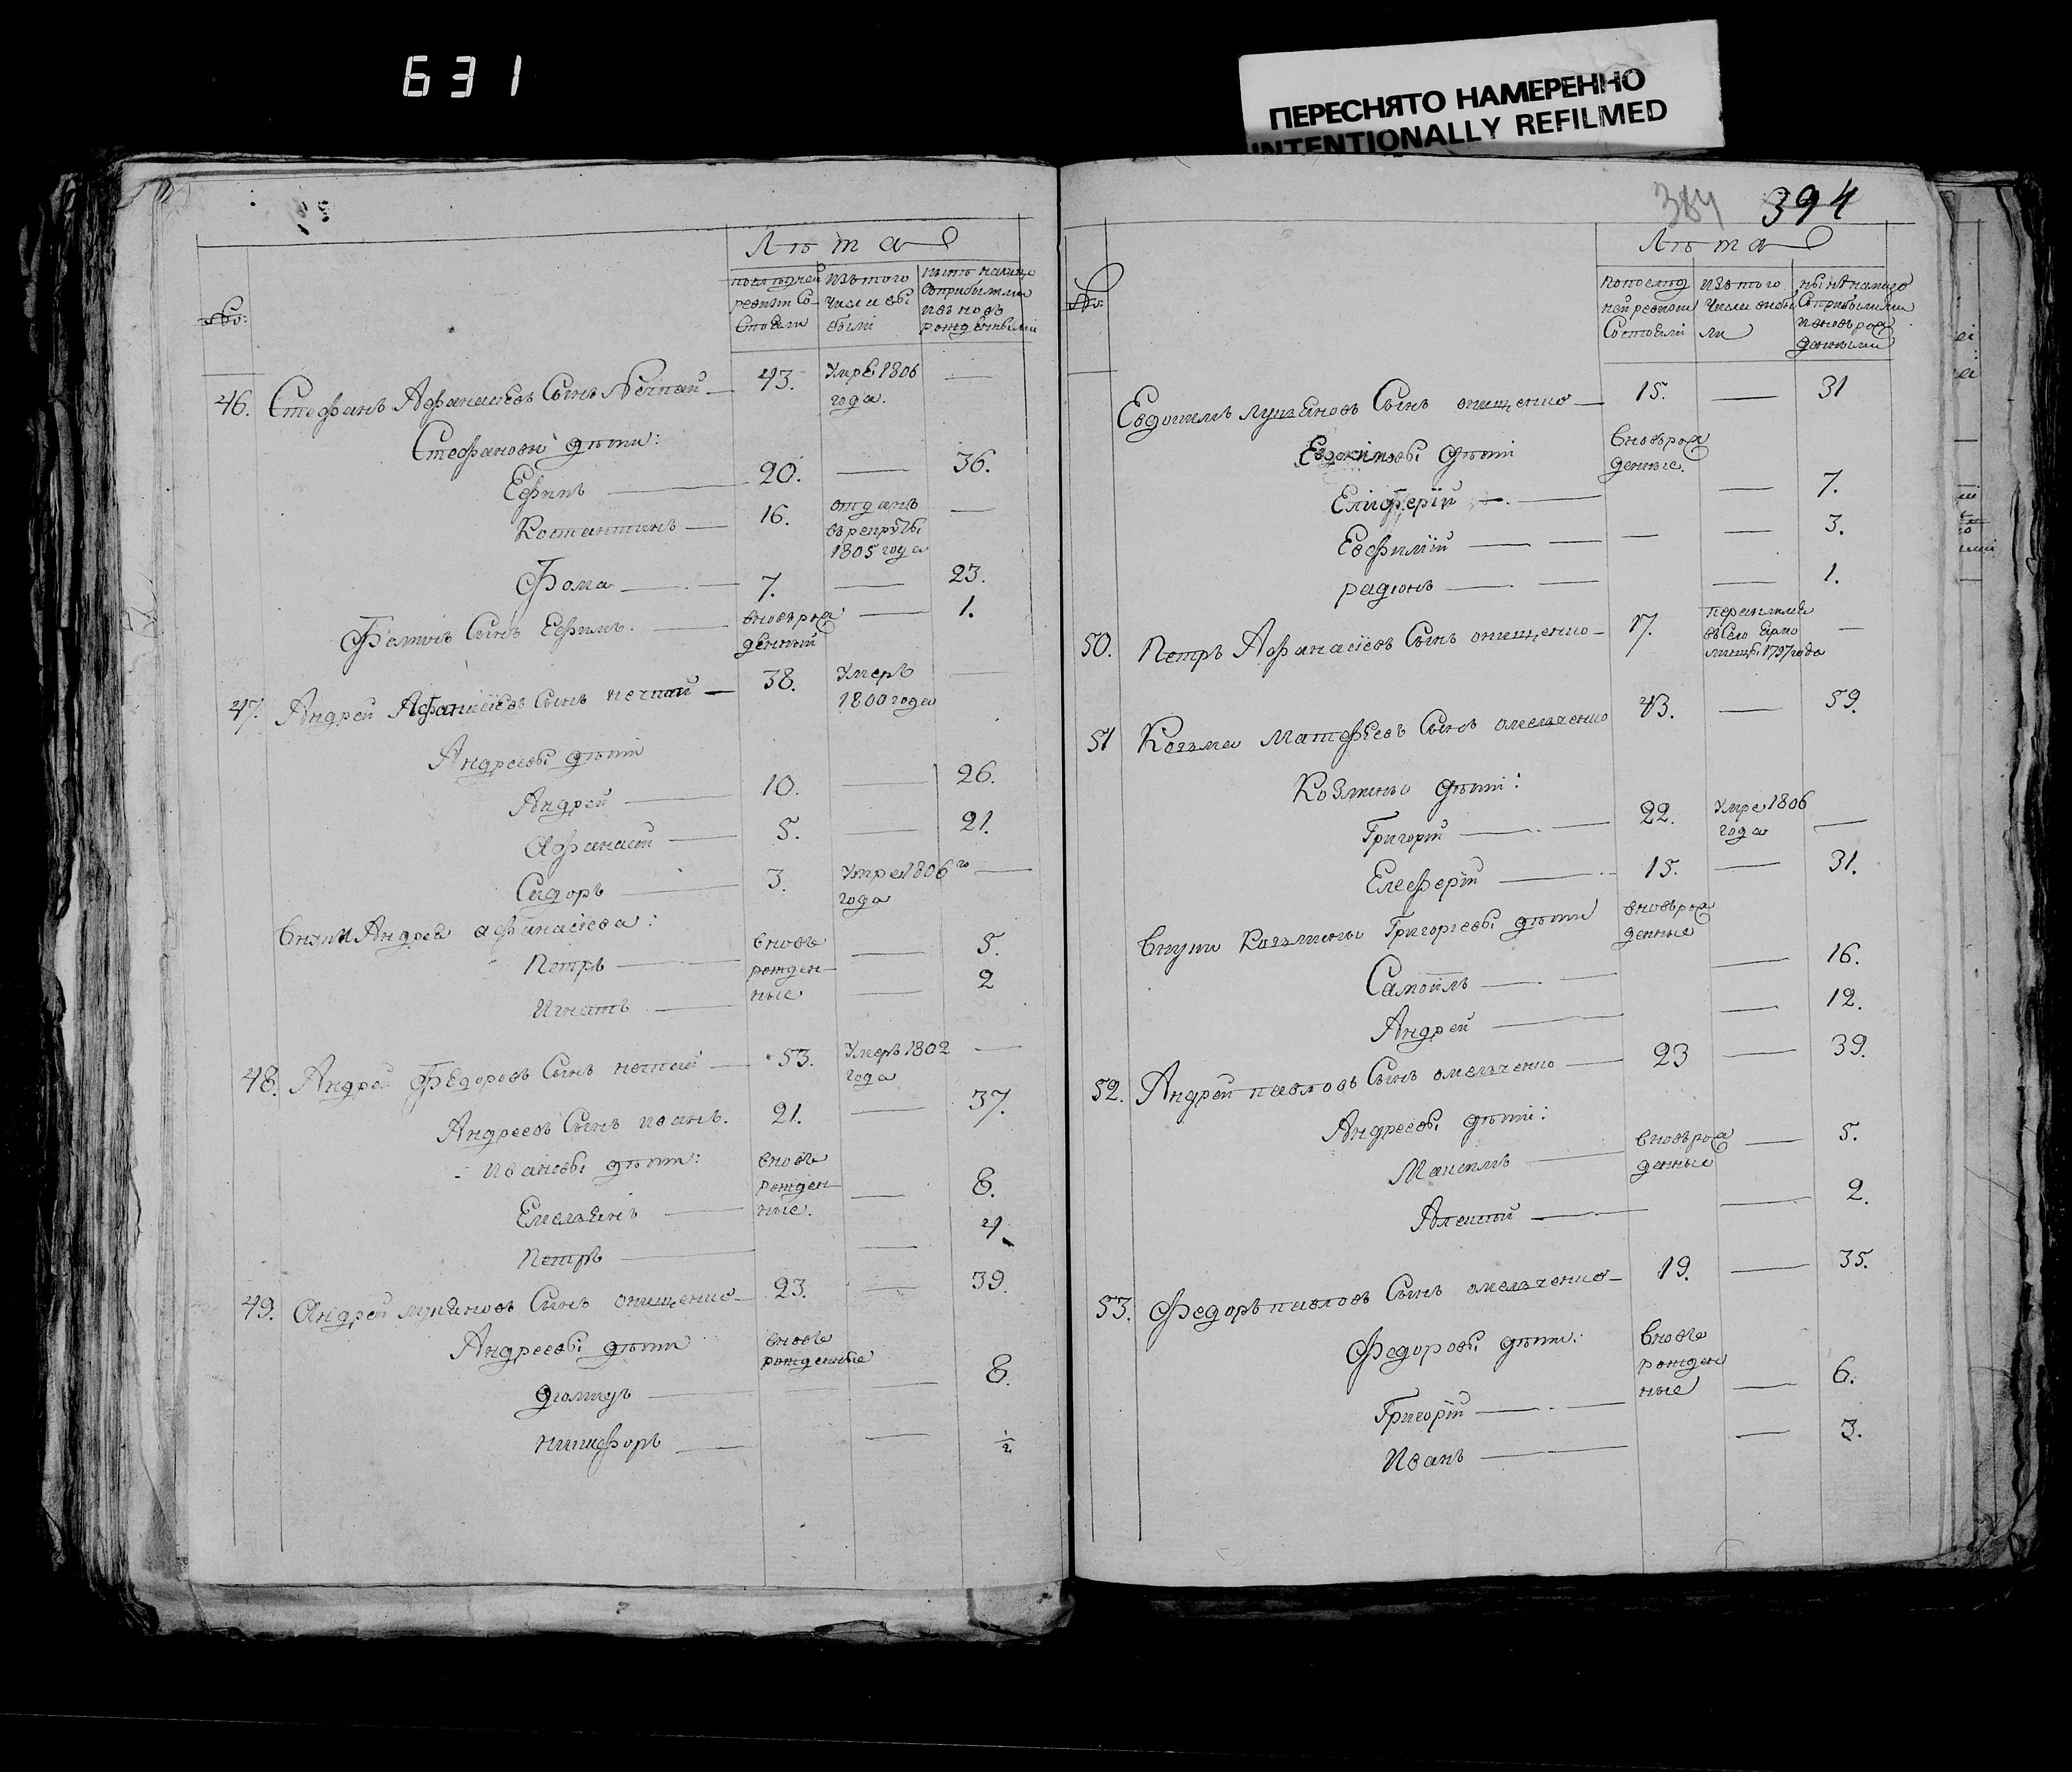 631
ПЕРЕСНЯТО НАМЕРЕННО
INTENTIONALLY REFILMED
384 394
Лѣта
№:
ревизіи Со-
стояли
изъ того
числа вы
были
ныне налицо
съ прибылыми
и вновь
рожденными
46. Стефанъ Афанасіевъ Сынъ Нечпай — 43. Умре 1806 года. —
Стефановы дѣти:
Ефимъ — 20. — 36.
Костантинъ — 16. отданъ въ рекруты 1805 года —
Фома — 7. — 23.
Фоминъ Сынъ Ефимъ. — вновь рожденный — 1.
47. Андрей Афанасіевъ Сынъ нечпай — 38. Умеръ 1800 года —
Андреевы дѣти
Андрей — 10. — 26.
Афанасій — 5. — 21.
Сидоръ — 3. Умре 1806го года —
внуки Андрея афанасіева:
Петръ — вновь рожденные — 5.
Игнатъ — — 2
48. Андрей Федоровъ Сынъ нечпай — 53. Умеръ 1802 года —
Андреевъ Сынъ иванъ. 21. — 37.
ивановы дѣти: вновь рожденные.
Емельянъ — — 8.
Петръ — — 4
49. Андрей лукяновъ Сынъ онищенко — 23. — 39.
Андреевы дѣти вновь рожденные
— — — 8.
никифоръ — — 1/2
Лѣта
№:
по послед
ней ревизіи
Состояли
изъ того
числа выбы
ли
ныне налицо
Съ прибылыми
и вновь рож
денными
Евдокимъ лукяновъ Сынъ онищенко — 15. — 31
Евдокимовы дѣти вновь рожденные.
Еліферій — — 7.
Евфимій — — — 3.
радіонъ — — 1.
50. Петръ Афанасіевъ Сынъ онищенко — 17. въ Село 1797 года —
51 Козьма Матфѣевъ Сынъ омельченко 43. — 59.
Козмины дѣти:
Григорій — 22. Умре 1806 года —
Елеферій — 15. — 31.
внуки Козьмины Григоріевы дѣти вновь рожденные
Самойлъ — — 16.
Андрей — — 12.
52. Андрей павловъ Сынъ омельченко — 23 — 39.
Андреевы дѣти:
Максимъ — вновь рожденные — 5.
Алексій — — 2.
53. Федоръ павловъ Сынъ омельченко — 19. — 35.
Федоровы дѣти: вновь рожденные
Григорій — — 6.
Иванъ — — 3.